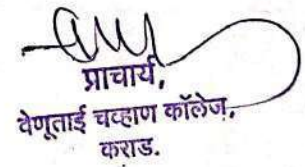 प्राचार्य,
वेणूताई चव्हाण कॉलेज,
कराड.